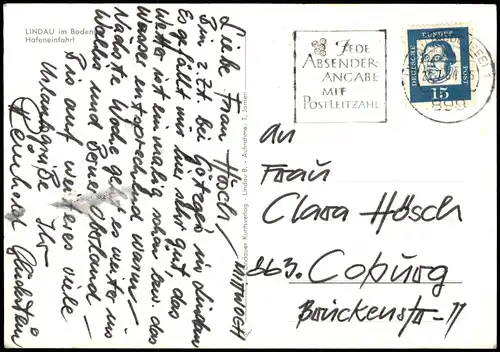 LINDAU im Boden
Hafeneinfahrt
MITTWOCH
Liebe Frau Hösch!
Bin z.Zt. bei in Lindau
Es gefällt mir hier sehr gut das
Wetter ist einmalig schön bzw. das
Wasser entsprechend warm!
Nächste Woche geht es weiter ins
Wallis und Berner Oberland
Bis auf weiteres viele
Urlaubsgrüße Ihr
Reinhard
Lindauer Kunstverlag - Lindau B. - Aufnahme: T.
JEDE
ABSENDER-
ANGABE
MIT
POSTLEITZAHL
DEUTSCHE
BUNDES
POST
15
899
An
Frau
Clara Hösch
863. Coburg
Brückenstr-11